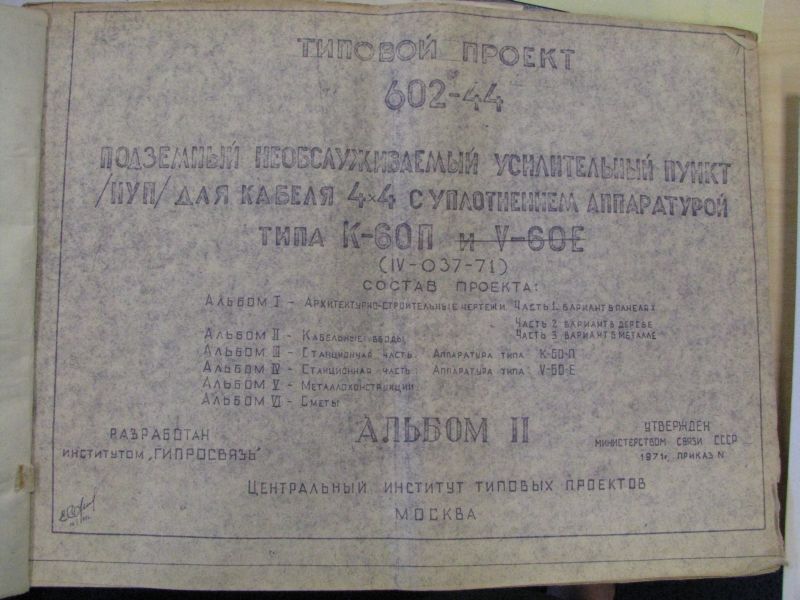 ТИПОВОЙ ПРОЕКТ
602-44
ПОДЗЕМНЫЙ НЕОБСЛУЖИВАЕМЫЙ УСИЛИТЕЛЬНЫЙ ПУНКТ
/НУП/ ДЛЯ КАБЕЛЯ 4×4 С УПЛОТНЕНИЕМ АППАРАТУРОЙ
ТИПА К-60П и V-60Е
(IV-037-71)
СОСТАВ ПРОЕКТА:
АЛЬБОМ I - АРХИТЕКТУРНО-СТРОИТЕЛЬНЫЕ ЧЕРТЕЖИ. ЧАСТЬ 1. ВАРИАНТ В ПАНЕЛЯХ
ЧАСТЬ 2 ВАРИАНТ В ДЕРЕВЕ
АЛЬБОМ II - КАБЕЛЬНЫЕ ВВОДЫ. ЧАСТЬ 3 ВАРИАНТ В МЕТАЛЛЕ
АЛЬБОМ III - СТАНЦИОННАЯ ЧАСТЬ. АППАРАТУРА ТИПА К-60-П
АЛЬБОМ IV - СТАНЦИОННАЯ ЧАСТЬ. АППАРАТУРА ТИПА V-60-Е
АЛЬБОМ V - МЕТАЛЛОКОНСТРУКЦИИ.
АЛЬБОМ VI - СМЕТЫ
АЛЬБОМ II
РАЗРАБОТАН
ИНСТИТУТОМ „ГИПРОСВЯЗЬ"
УТВЕРЖДЕН
МИНИСТЕРСТВОМ СВЯЗИ СССР
1971г. ПРИКАЗ N
ЦЕНТРАЛЬНЫЙ ИНСТИТУТ ТИПОВЫХ ПРОЕКТОВ
МОСКВА